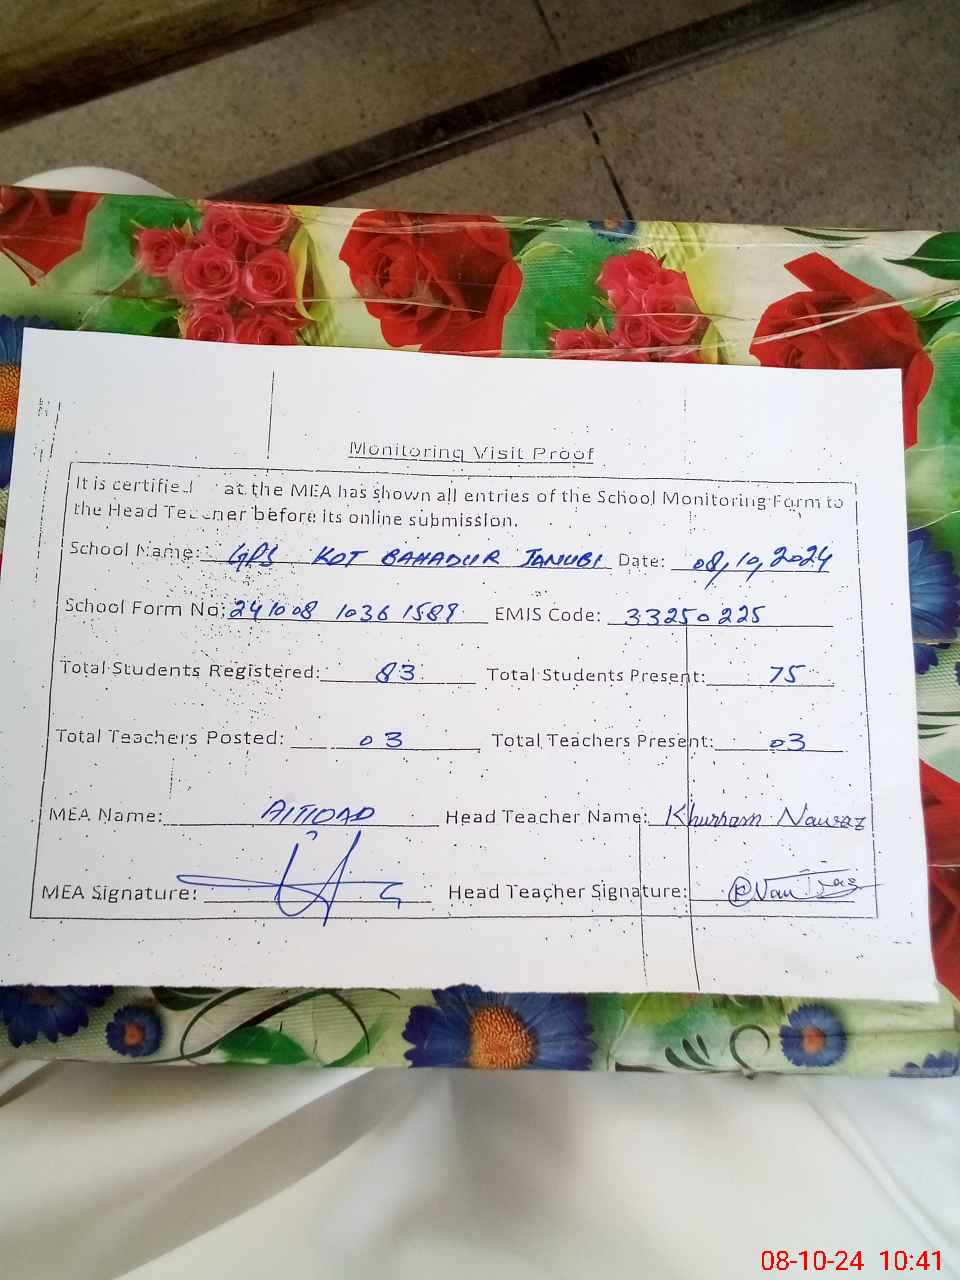 Monitoring Visit Proof
It is certified at the MEA has shown all entries of the School Monitoring Form to
the Head Teacher before its online submission.
School Name: GPS KOT BAHADUR JANUBI Date: 08,10,2024
School Form No: 241008 1036 1589 EMIS Code: 33250225
Total Students Registered: 83 Total Students Present: 75
Total Teachers Posted: 03 Total Teachers Present: 03
MEA Name: Head Teacher Name: Khurram Nawaz
MEA Signature: Head Teacher Signature:
08-10-24 10:41